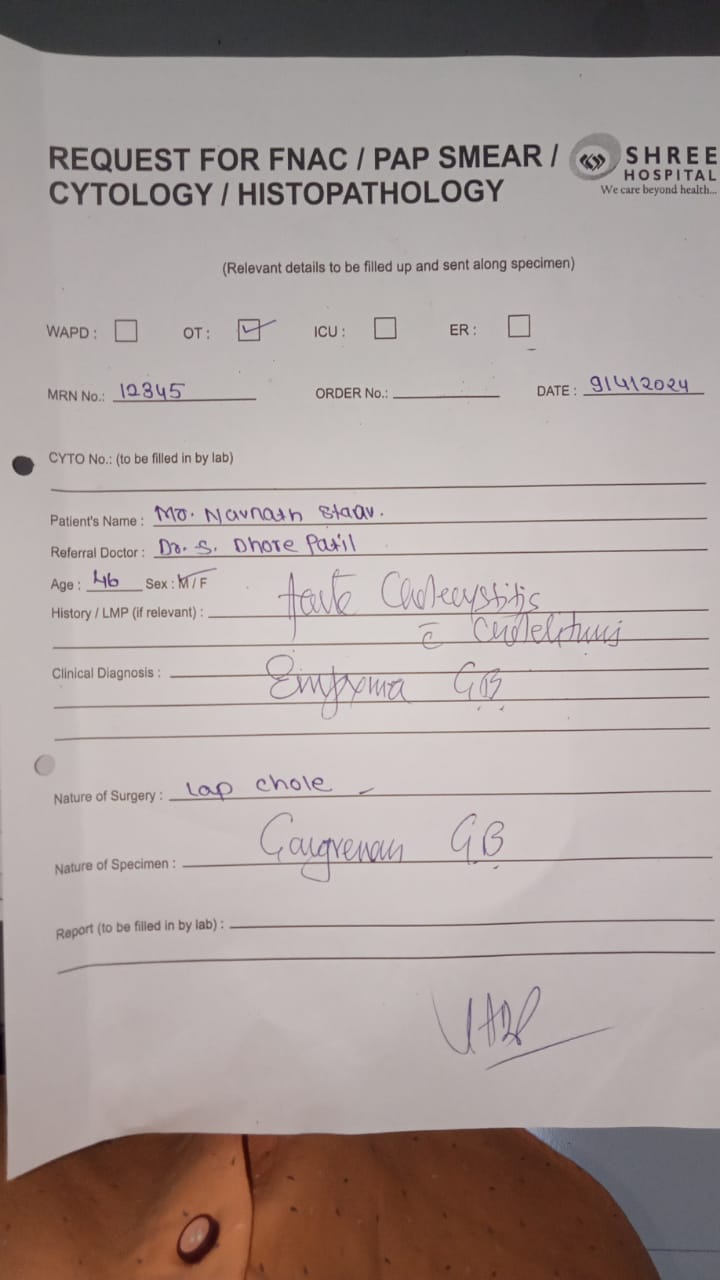 REQUEST FOR FNAC / PAP SMEAR /
CYTOLOGY / HISTOPATHOLOGY
SHREE
HOSPITAL
We care beyond health...
(Relevant details to be filled up and sent along specimen)
WAPD : OT : ICU : ER :
MRN No.: 12345 ORDER No.: DATE : 9/4/2024
CYTO No.: (to be filled in by lab)
Patient's Name : Mr. Navnath
Referral Doctor : Dr. S. Dhore Patil
Age : 46 Sex : M / F
History / LMP (if relevant) : Acute Cholecystitis
c̄ Cholelithiasis
Clinical Diagnosis : Empyema GB
Nature of Surgery : Lap chole
Nature of Specimen : Gangrenous GB
Report (to be filled in by lab) :